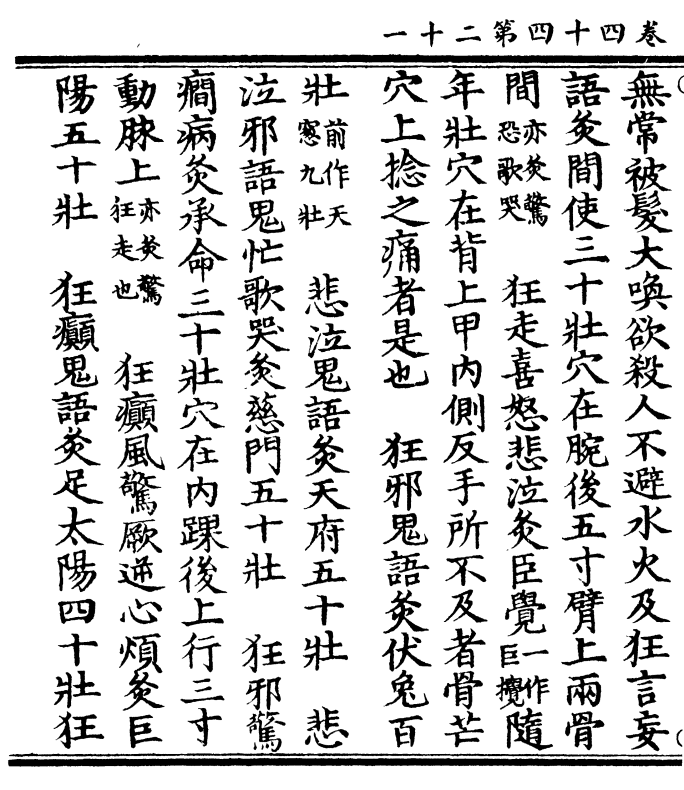 卷四十四第二十一
無常被髮大喚欲殺人不避水火及狂言妄
語灸間使三十壯穴在腕後五寸臂上兩骨
間亦灸驚恐歌哭　狂走喜怒悲泣灸臣覺一作巨攪隨
年壯穴在背上甲内側反手所不及者骨芒
穴上捻之痛者是也　狂邪鬼語灸伏兔百
壯前作天窓九壯　悲泣鬼語灸天府五十壯　悲
泣邪語鬼忙歌哭灸慈門五十壯　狂邪驚
癇病灸承命三十壯穴在内踝後上行三寸
動脉上亦灸驚狂走也　狂癲風驚厥逆心煩灸巨
陽五十壯　狂癲鬼語灸足太陽四十壯狂